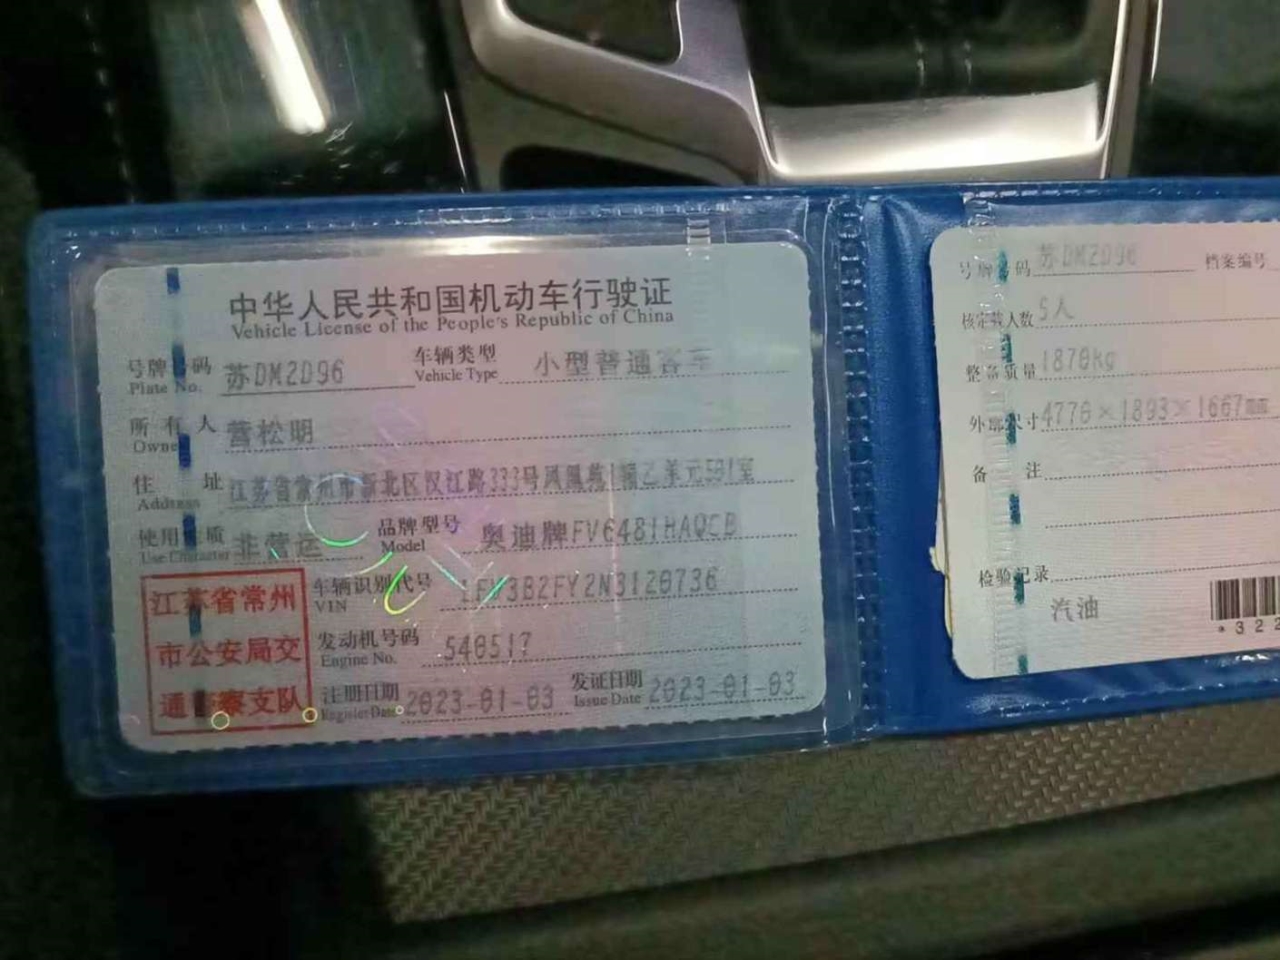 中华人民共和国机动车行驶证
Vehicle License of the People's Republic of China
号牌号码 苏DM2D96 车辆类型 小型普通客车
Plate No. Vehicle Type
所有人 营松明
Owner
住址 江苏省常州市新北区汉江路333号凤凰苑1幢乙单元501室
Address
使用性质 非营运 品牌型号 奥迪牌FV6481HAQCB
Use Character Model
车辆识别代号 LFV3B2FY2N3120736
VIN
发动机号码 540517
Engine No.
注册日期 2023-01-03 发证日期 2023-01-03
Register Date Issue Date
江苏省常州
市公安局交
通警察支队
号牌号码 苏DM2D96 档案编号
核定载人数 5人
整备质量 1870kg
外廓尺寸 4770×1893×1667mm
备注
检验记录
汽油
*322